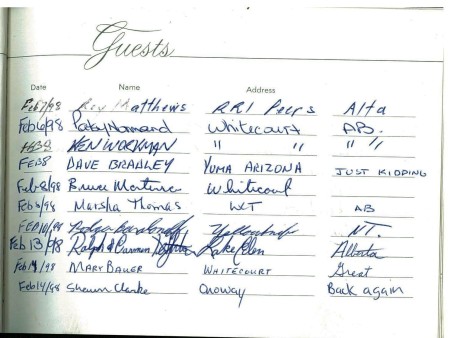 Guests
Date Name Address
Feb7/98 Matthews RR1 Peers Alta
Feb6/98 Whitecourt AB.
KEN WORKMAN " " " "
FEB8 DAVE BRADLEY YUMA ARIZONA JUST KIDDING
Feb 8/98 Bruce Whitecourt
Feb 8/98 Marsha Thomas WCT AB
FEB10/98 Yellowknife NT.
Feb 13/98 Ralph & Carmen Lake Alberta
Feb 14/98 MARY BAUER WHITECOURT Great
Feb14/98 Shawn Clarke Onoway Back again